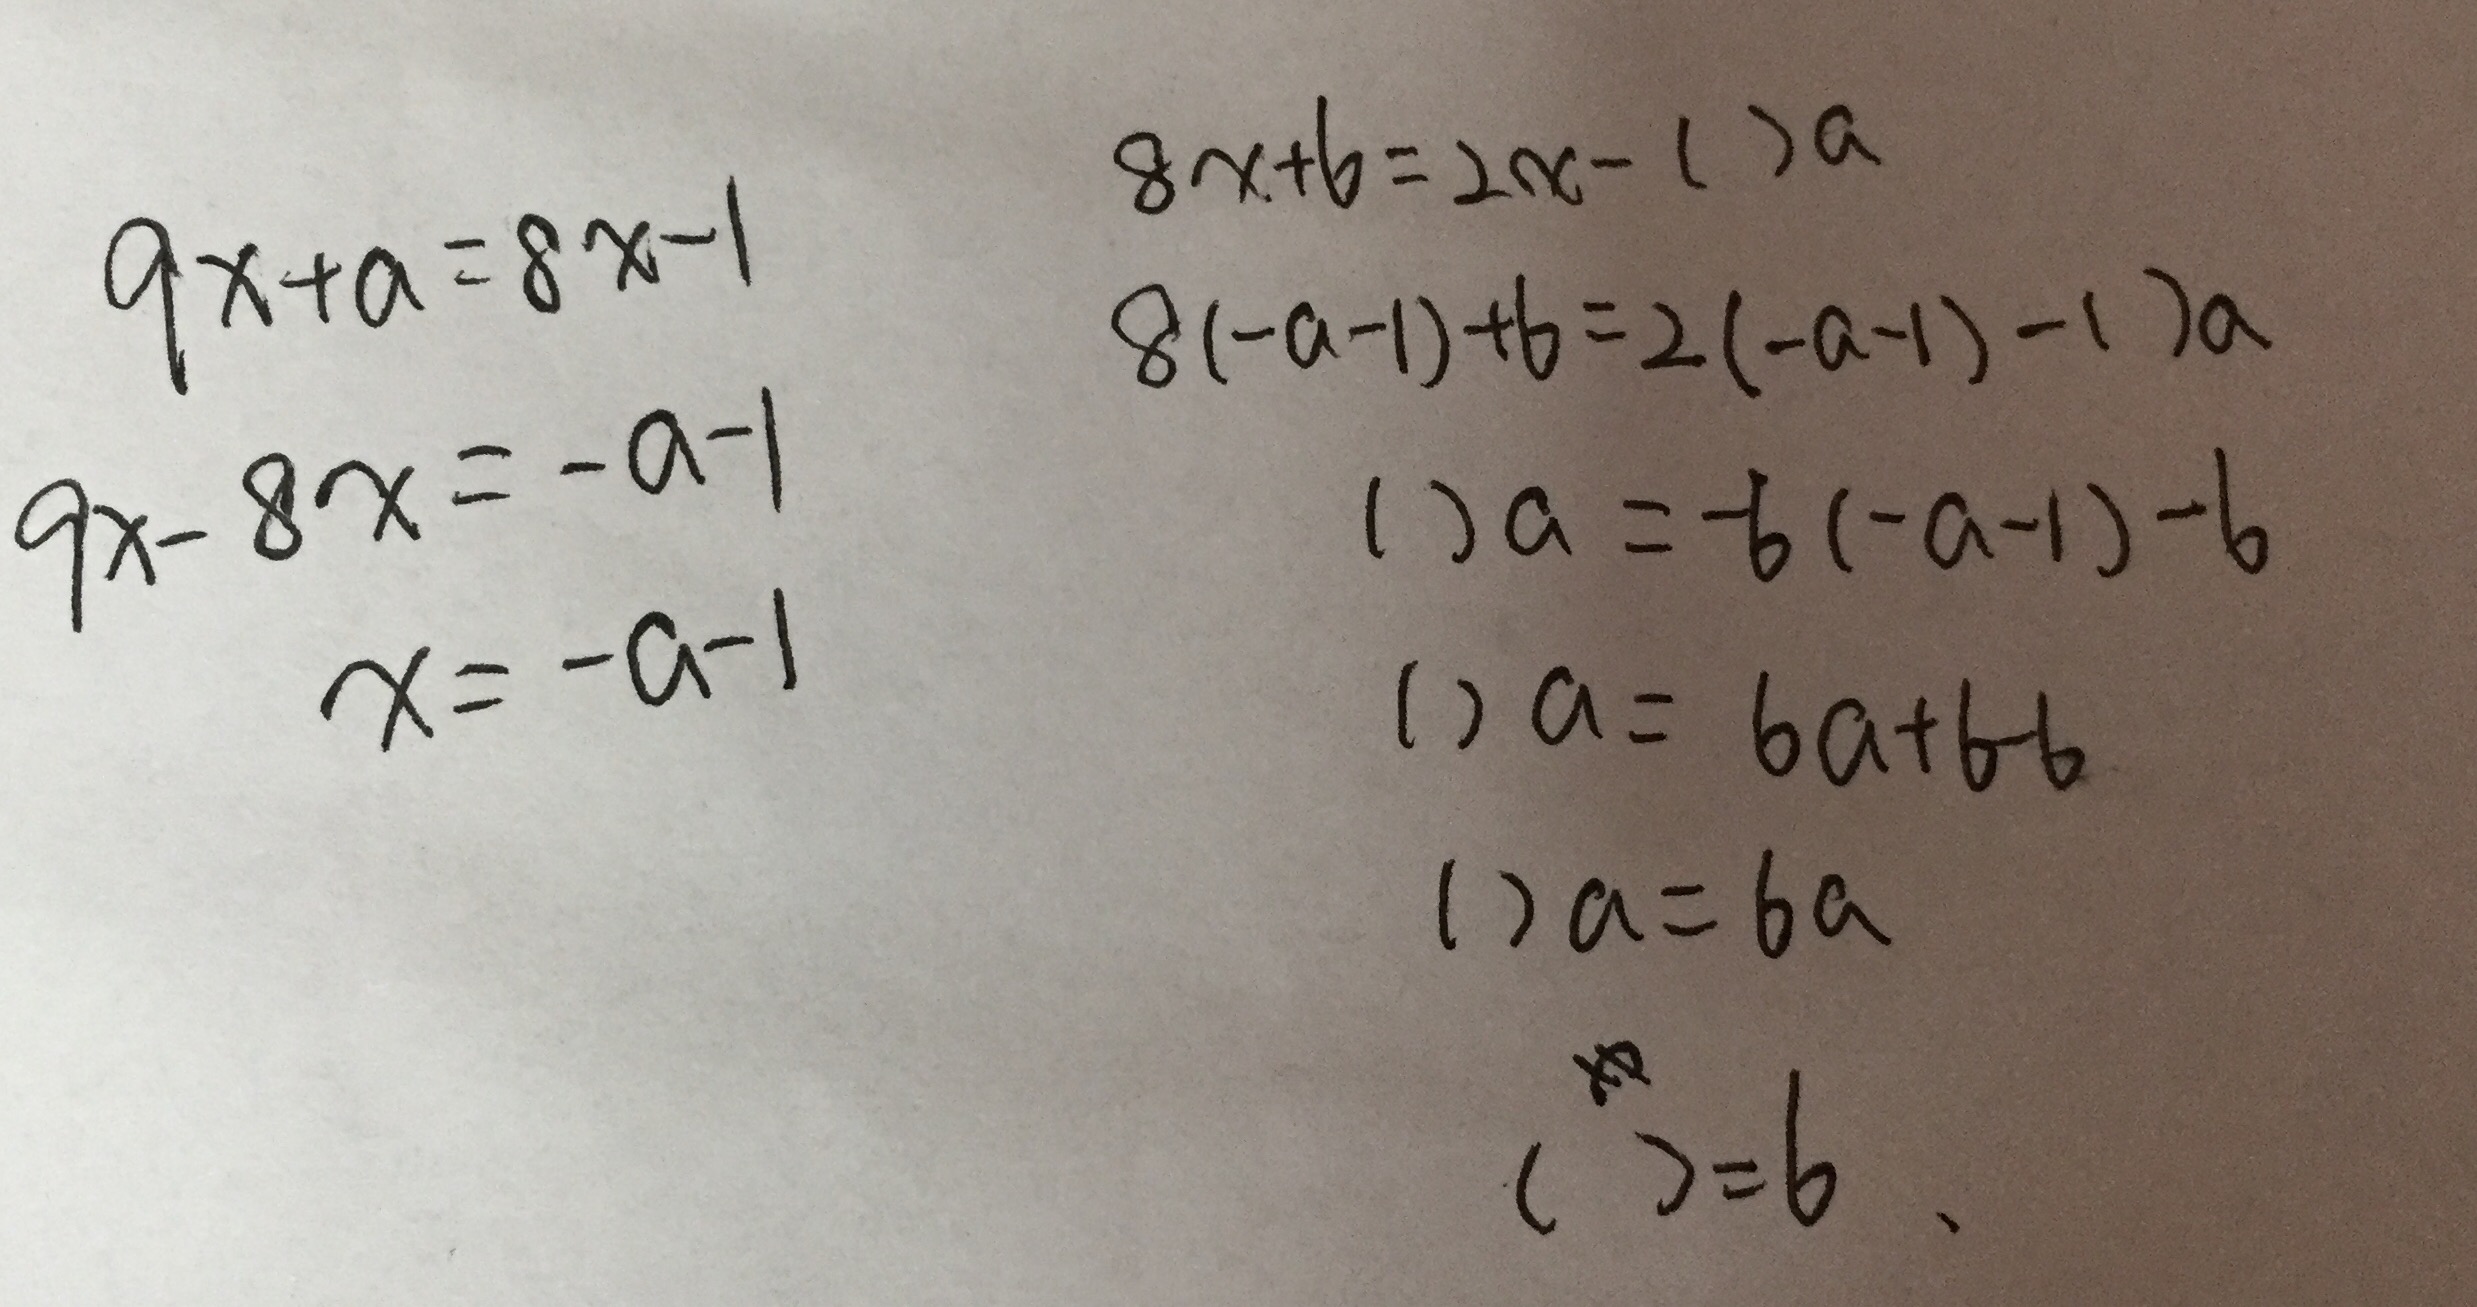 9x+a=8x-1
9x-8x=-a-1
x=-a-1
8x+6=2x-( )a
8(-a-1)+6=2(-a-1)-( )a
( )a=-6(-a-1)-6
( )a=6a+6-6
( )a=6a
( )=6、